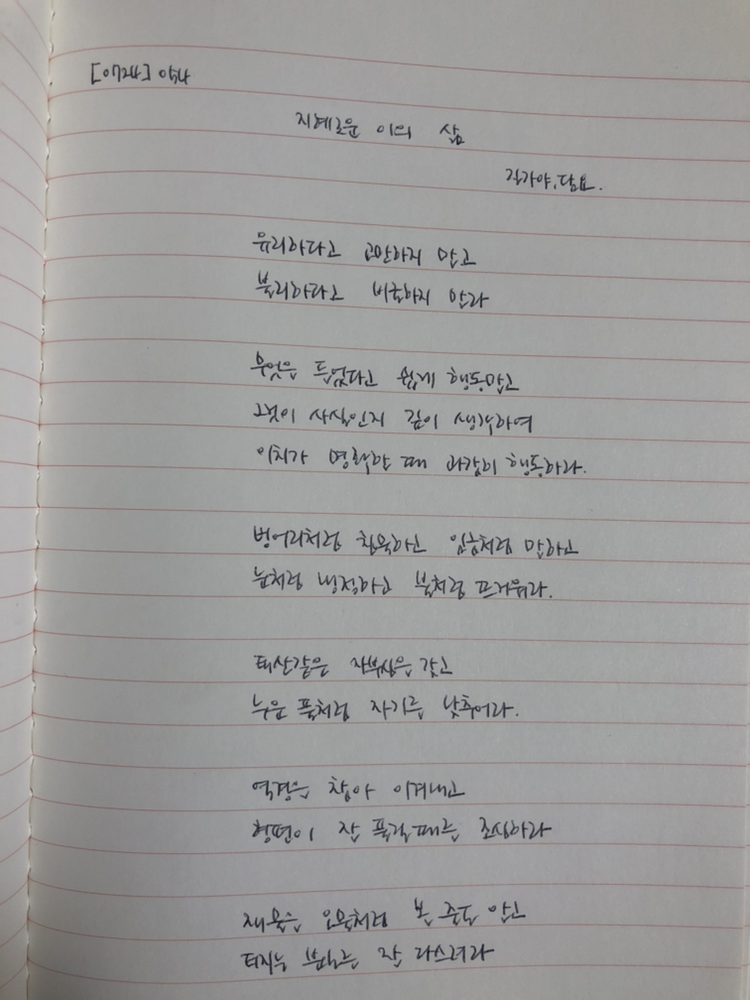 [0724] 약사
지혜로운 이의 삶
잡아함경.
유리하다고 교만하지 말고
불리하다고 비굴하지 말라
무엇을 들었다고 쉽게 행동말고
그것이 사실인지 깊이 생각하여
이치가 명확할 때 과감히 행동하라.
벙어리처럼 침묵하고 임금처럼 말하고
눈처럼 냉정하고 불처럼 뜨거워라.
태산같은 자부심을 갖고
누운 풀처럼 자기를 낮추어라.
역경을 참아 이겨내고
형편이 잘 풀릴때를 조심하라
재물을 오물처럼 볼 줄도 알고
터지는 분노를 잘 다스려라